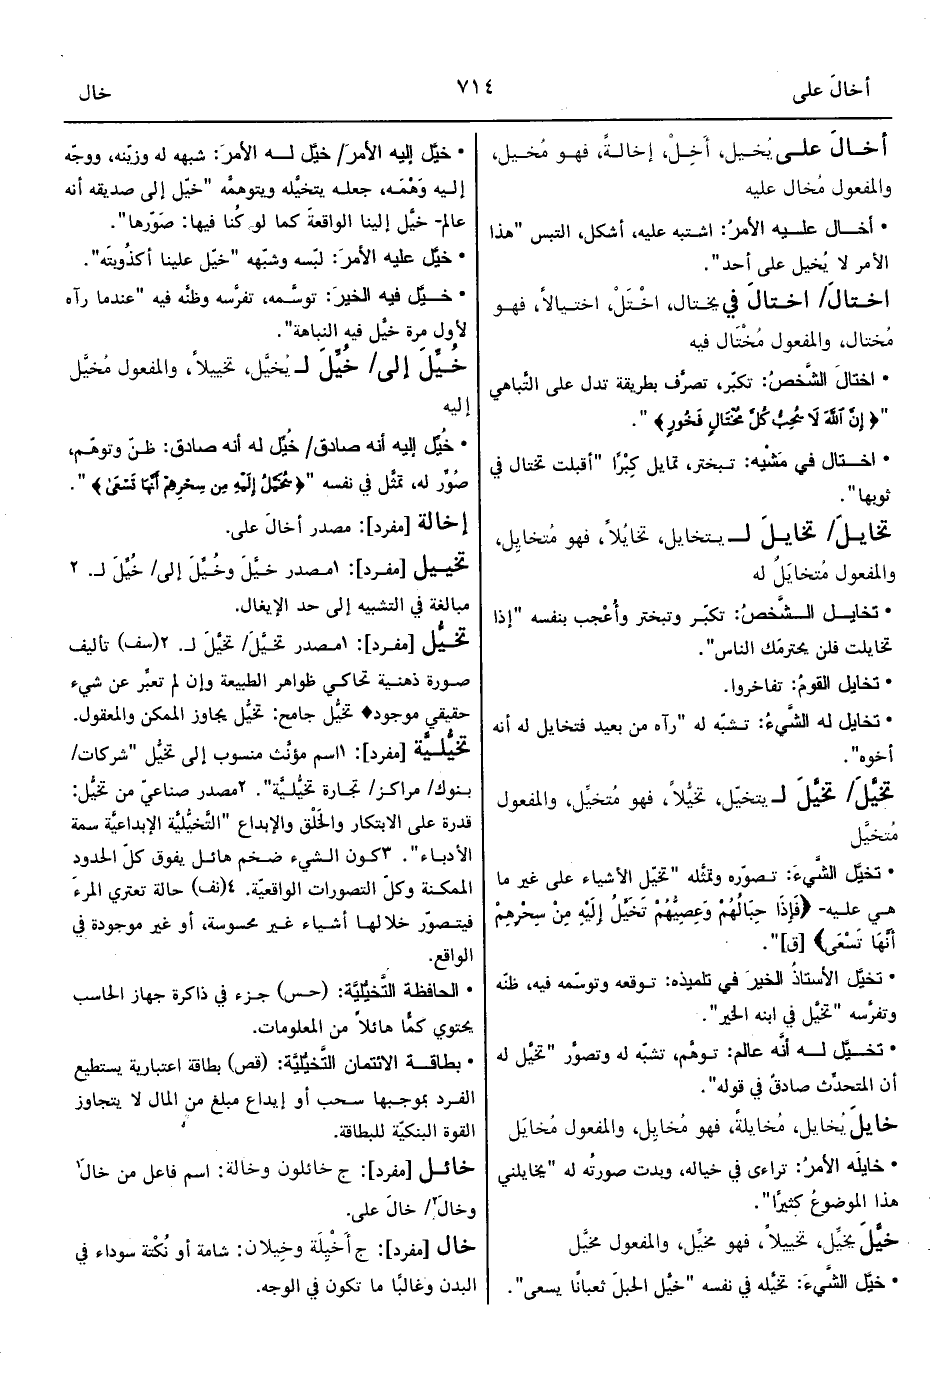 أخالَ على
٧١٤
خال
أخـال علـى يُخـيل، أَخِلْ، إخالـةً، فهـو مُخـيل،
والمفعول مُخال عليه
• أخـال علـيه الأمرُ: اشتبه عليه، أشكل، التبس "هذا
الأمر لا يُخيل على أحد".
اختالَ/ اختالَ في يختال، اخْتَلْ، اختـيالاً، فهـو
مُختال، والمفعول مُخْتال فيه
• اختالَ الشَّخصُ: تكبّر، تصرَّف بطريقة تدل على التَّباهي
"﴿ إِنَّ اللَّهَ لَا يُحِبُّ كُلَّ مُخْتَالٍ فَخُورٍ ﴾".
• اخـتال في مَشْيِه: تبختر، تمايل كِبْرًا "أقبلت تختال في
ثوبها".
تخايلَ/ تخايلَ لـ يـتخايل، تخايُلاً، فهو مُتخايِل،
والمفعول مُتخايَلُ له
• تخايـل الـشَّخصُ: تكبّر وتبختر وأُعْجب بنفسه "إذا
تخايلت فلن يحترمك الناس".
• تخايل القومُ: تفاخروا.
• تخايل له الشَّيءُ: تـشبّه له "رآه من بعيد فتخايل له أنه
أخوه".
تخيَّلَ/ تخيَّلَ لـ يتخيّل، تخيُّلاً، فهو مُتخيِّل، والمفعول
مُتخيَّل
• تخيَّل الشَّيءَ: تـصوّره وتمثَّله "تخيّل الأشياء على غير ما
هـي علـيه- ﴿فَإِذَا حِبَالُهُمْ وَعِصِيُّهُمْ تَخَيَّلُ إِلَيْهِ مِنْ سِحْرِهِمْ
أَنَّهَا تَسْعَى﴾ [ق]".
• تخيَّل الأستاذُ الخيرَ في تلميذه: توقعه وتوسّمه فيه، ظنّه
وتفرّسه "تخيَّل في ابنه الخير".
• تخـيَّل لـه أنَّه عالم: تـوهّم، تشبّه له وتصوَّر "تخيَّل له
أن المتحدِّث صادقٌ في قوله".
خايلَ يُخايل، مُخايلةً، فهو مُخايِل، والمفعول مُخايَل
• خايلَه الأمرُ: تراءى في خياله، وبدت صورتُه له "يخايلني
هذا الموضوعُ كثيرًا".
خيَّلَ يخيِّل، تخييلاً، فهو مخيِّل، والمفعول مخيَّل
• خيَّل الشَّيءَ: تخيَّله في نفسه "خيَّل الحبلَ ثعبانًا يسعى".
• خيَّل إليه الأمرَ/ خيَّل لـه الأمرَ: شبهه له وزيّنه، ووجّه
إلـيه وَهْمَـه، جعلـه يتخيَّله ويتوهمَّه "خيّل إلى صديقه أنه
عالم- خيَّل إلينا الواقعةَ كما لو كُنا فيها: صَوّرها".
• خيَّل عليه الأمرَ: لبّسه وشبّهه "خيّل علينا أكذُوبتَه".
• خـيَّل فيه الخيرَ: توسَّمه، تفرَّسه وظنَّه فيه "عندما رآه
لأول مرة خيَّل فيه النباهة".
خُـيِّلَ إلى/ خُيِّلَ لـ يُخيَّل، تخييلاً، والمفعول مُخيَّل
إليه
• خُيِّل إليه أنه صادق/ خُيِّل له أنه صادق: ظنّ وتوهّم،
صُوِّر له، تمثَّل في نفسه "﴿ يُخَيَّلُ إِلَيْهِ مِن سِحْرِهِمْ أَنَّهَا تَسْعَىٰ ﴾".
إخالة [مفرد]: مصدر أخالَ على.
تخييل [مفرد]: ١مـصدر خيَّلَ وخُيِّلَ إلى/ خُيِّلَ لـ. ٢
مبالغة في التشبيه إلى حد الإيغال.
تخـيُّل [مفرد]: ١مـصدر تخيَّلَ/ تخيَّلَ لـ. ٢(سف) تأليف
صـورة ذهنية تحاكي ظواهر الطبيعة وإن لم تعبِّر عن شيء
حقيقي موجود♦ تخيُّل جامح: تخيُّل يجاوز الممكن والمعقول.
تخيُّلـيَّة [مفرد]: ١اسم مؤنَّث منسوب إلى تخيُّل "شركات/
بـنوك/ مراكـز/ تجـارة تخيُّلـيَّة". ٢مصدر صناعيّ من تخيُّل:
قدرة على الابتكار والخَلْق والإبداع "التَّخيُّلية الإبداعيَّة سمة
الأدباء". ٣كـون الـشيء ضخم هائـل يفوق كلّ الحدود
الممكنة وكلّ التصورات الواقعيّة. ٤(نف) حالة تعتري المرءَ
فيتصـوّر خـلالهـا أشياء غـير محسوسة، أو غير موجودة في
الواقع.
• الحافظة التَّخيُّليَّة: (حـس) جـزء في ذاكرة جهاز الحاسب
يحتوي كمًّا هائلاً من المعلومات.
• بطاقـة الائتمان التَّخيُّليَّة: (قص) بطاقة اعتبارية يستطيع
الفـرد بموجبـها سـحب أو إيداع مبلغ من المال لا يتجاوز
القوة البنكيّة للبطاقة.
خائـل [مفرد]: ج خائلون وخالة: اسم فاعل من خالَ١
وخالَ٢/ خالَ على.
خال [مفرد]: ج أَخْيِلَة وخِيلان: شامة أو نُكْتة سوداء في
البدن وغالبًا ما تكون في الوجه.